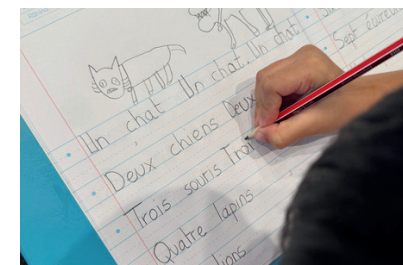 Un chat Un chat. Un chat
Deux chiens Deux
Trois souris Troi
Quatre lapins
Sept